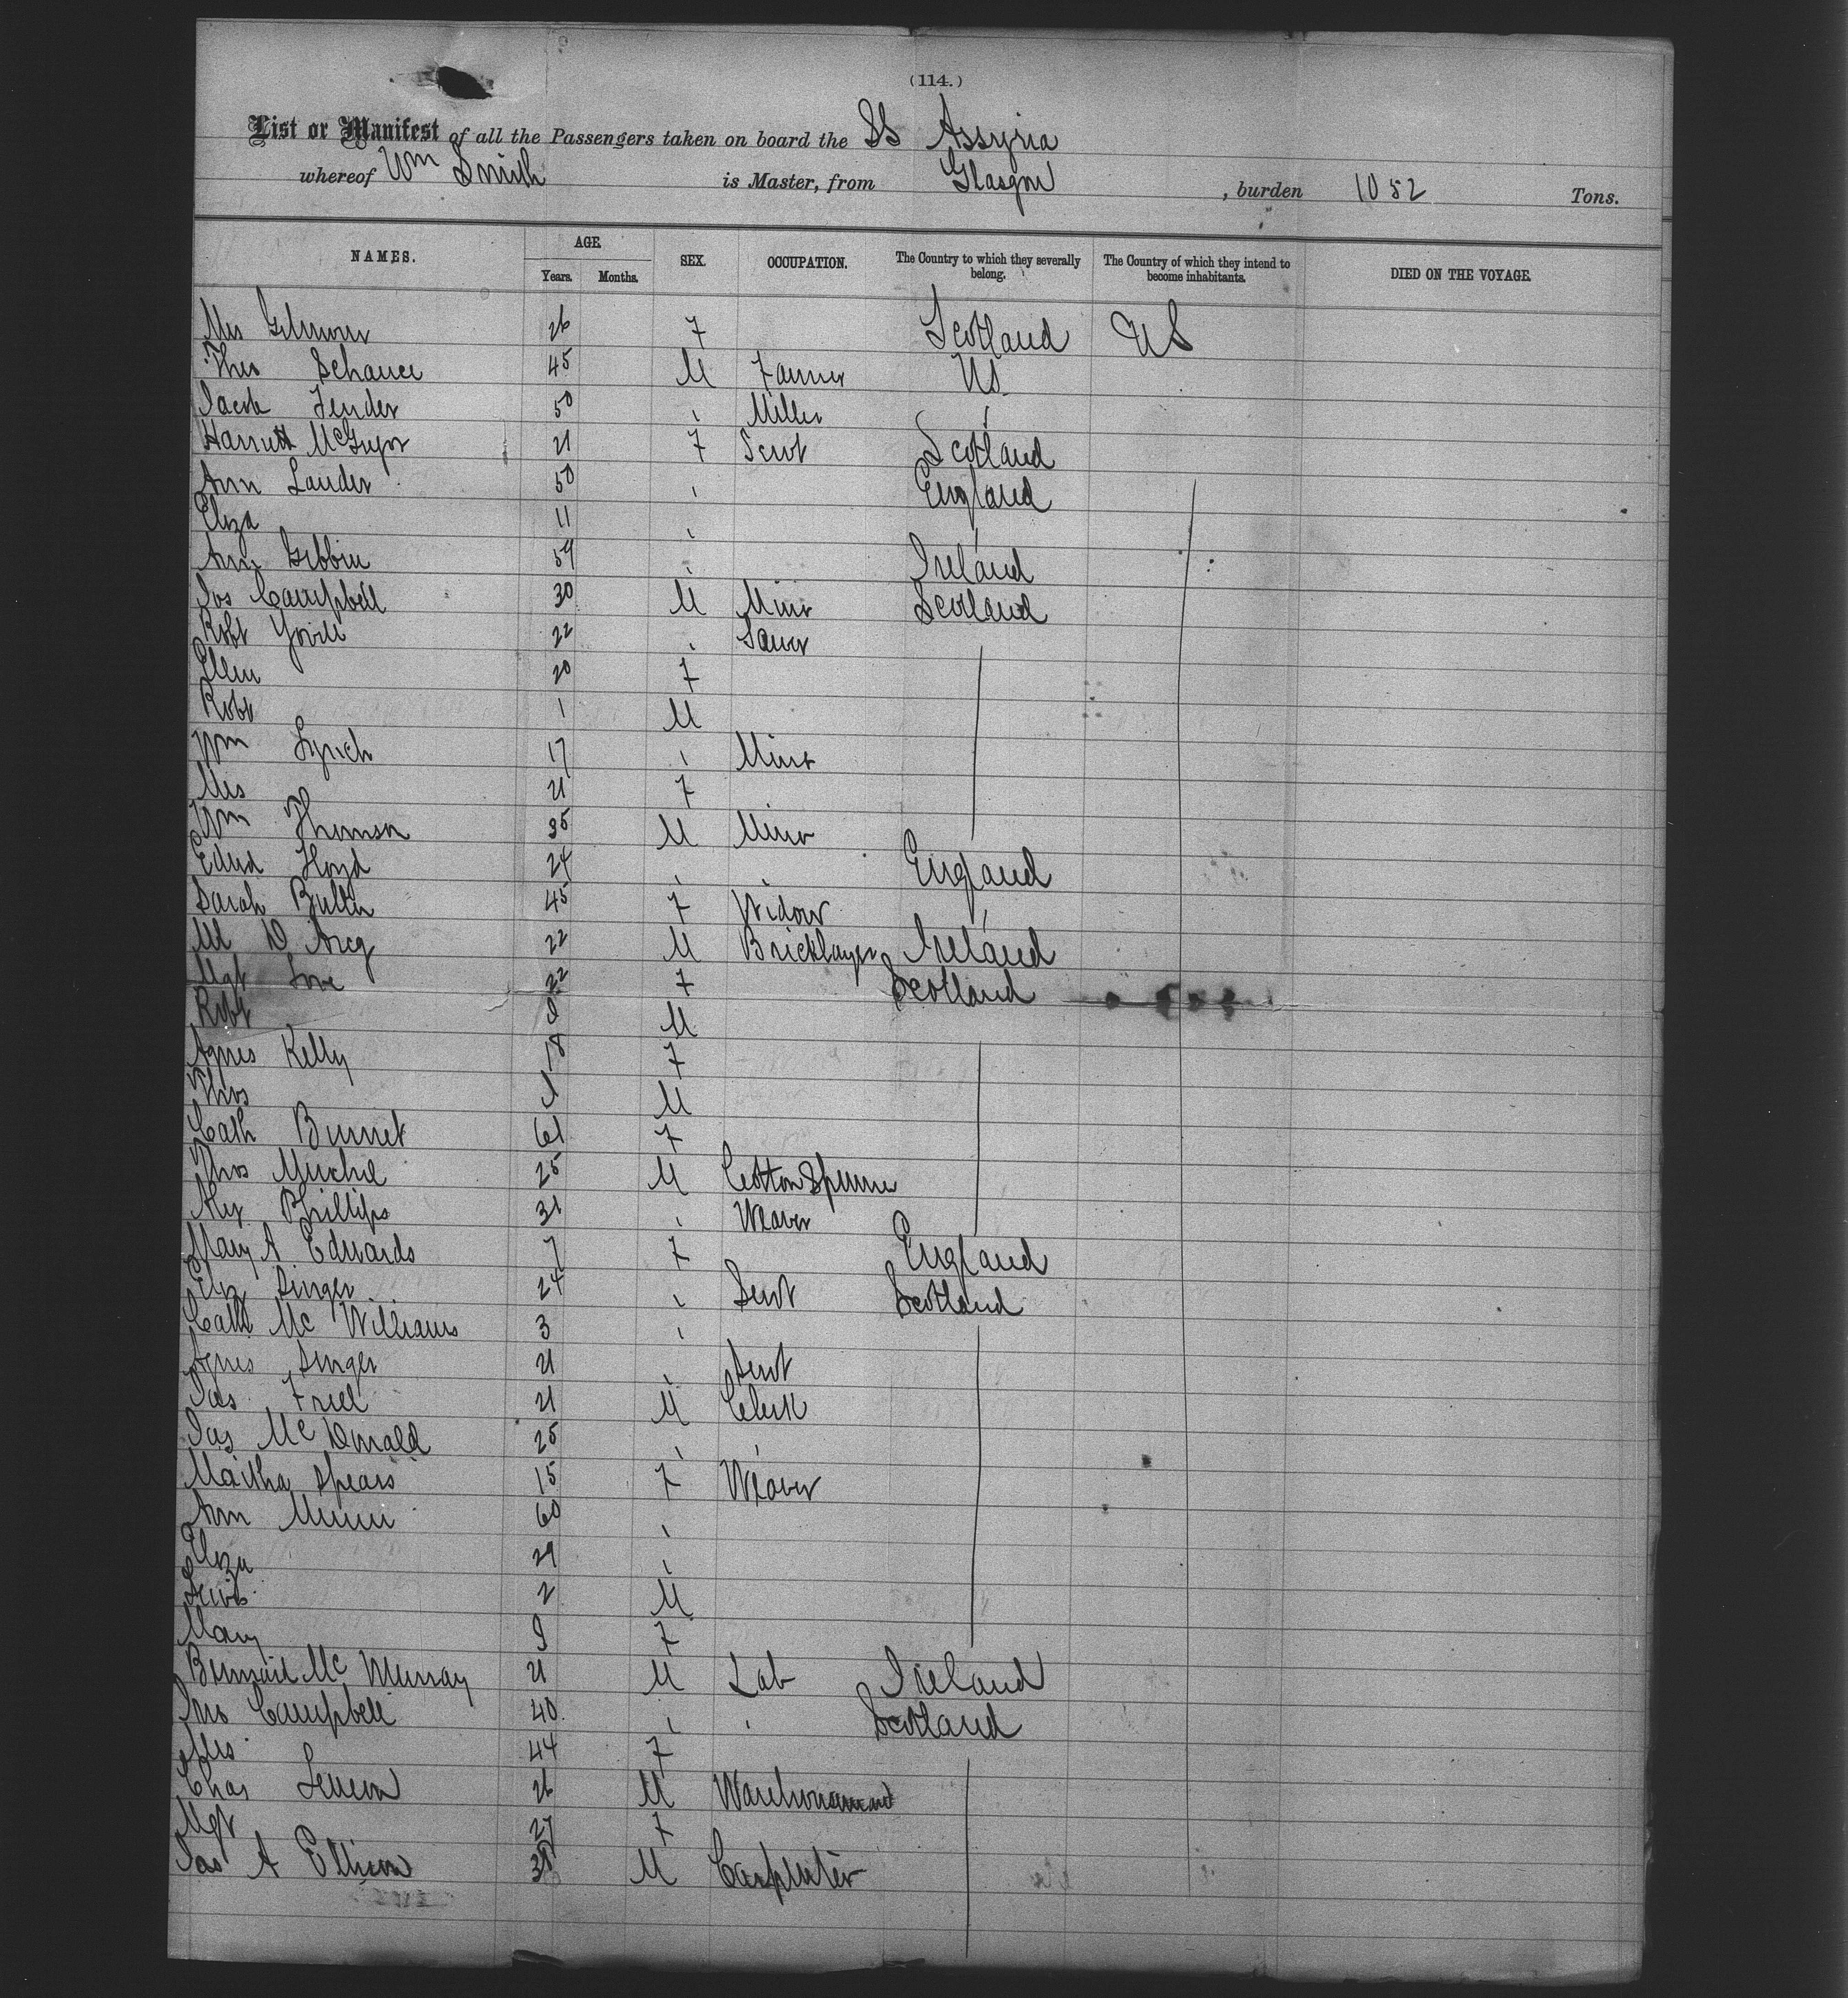 (114.)
List or Manifest of all the Passengers taken on board the SS Assyria
whereof Wm Smith is Master, from Glasgow, burden 1052 Tons.
NAMES. AGE. SEX. OCCUPATION. The Country to which they severally belong. The Country of which they intend to become inhabitants. DIED ON THE VOYAGE.
Years. Months.
Mrs Gilmour 26 F Scotland US
Thos 45 M Farmer US
Jacob 50 " Miller "
Harriett McGregor 21 F Servt Scotland
Ann Lauder 50 " England
Eliza 11 " "
Ann Gibbin 59 " Ireland
Jos Campbell 30 M Miner Scotland
Robt 22 "
Ellen 20 F
Robt 1 M
Wm Lynch 17 " Miner
Mrs 21 F
Wm Thomson 35 M Miner
Edwd Lloyd 24 " " England
Sarah Butler 45 F Widow "
M D Arcy 22 M Bricklayer Ireland
Mgt Love 22 F Scotland
Robt M
Agnes Kelly 18 F
Thos M
Cath Burnet 61 F
Thos 25 M Cotton Spinner
Alex Phillips 31 " Weaver
Mary A Edwards 7 F England
Eliz Singer 24 " Servt Scotland
Cath Mc Williams 3 "
Agnes Singer 21 " Servt
Jas Friel 21 M Clerk
Jas McDonald 25 " "
Martha Spears 15 F Weaver
Ann 60 "
Eliza 29 "
2 M
Mary 9 F
Mc Murray 21 M Lab Ireland
Jno Campbell 40 " " Scotland
Mrs 44 F
Chas 26 M Warehouseman
Mgt 27 F
Jas A Ellison M Carpenter